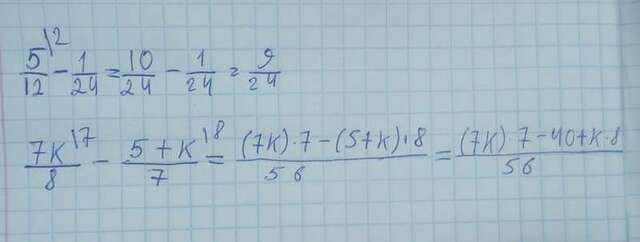 5/12 \2 - 1/24 = 10/24 - 1/24 = 9/24
7K/8 \7 - (5+K)/7 \8 = ((7K)·7-(5+K)·8)/56 = ((7K) 7-40+K·8)/56